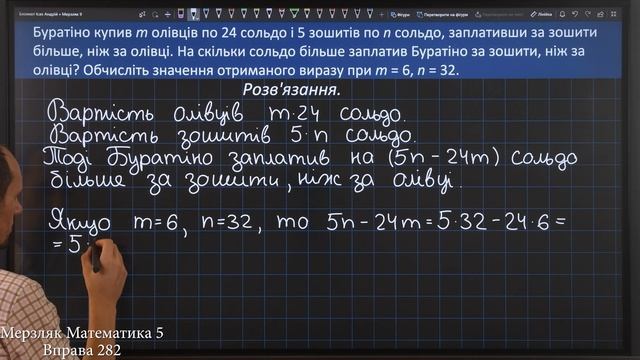 Буратіно купив m олівців по 24 сольдо і 5 зошитів по n сольдо, заплативши за зошити
більше, ніж за олівці. На скільки сольдо більше заплатив Буратіно за зошити, ніж за
олівці? Обчисліть значення отриманого виразу при m = 6, n = 32.
Розв'язання.
Вартість олівців m·24 сольдо.
Вартість зошитів 5·n сольдо.
Тоді Буратіно заплатив на (5n - 24m) сольдо
більше за зошити, ніж за олівці.
Якщо m=6, n=32, то 5n-24m=5·32-24·6=
=5·
Мерзляк Математика 5
Вправа 282